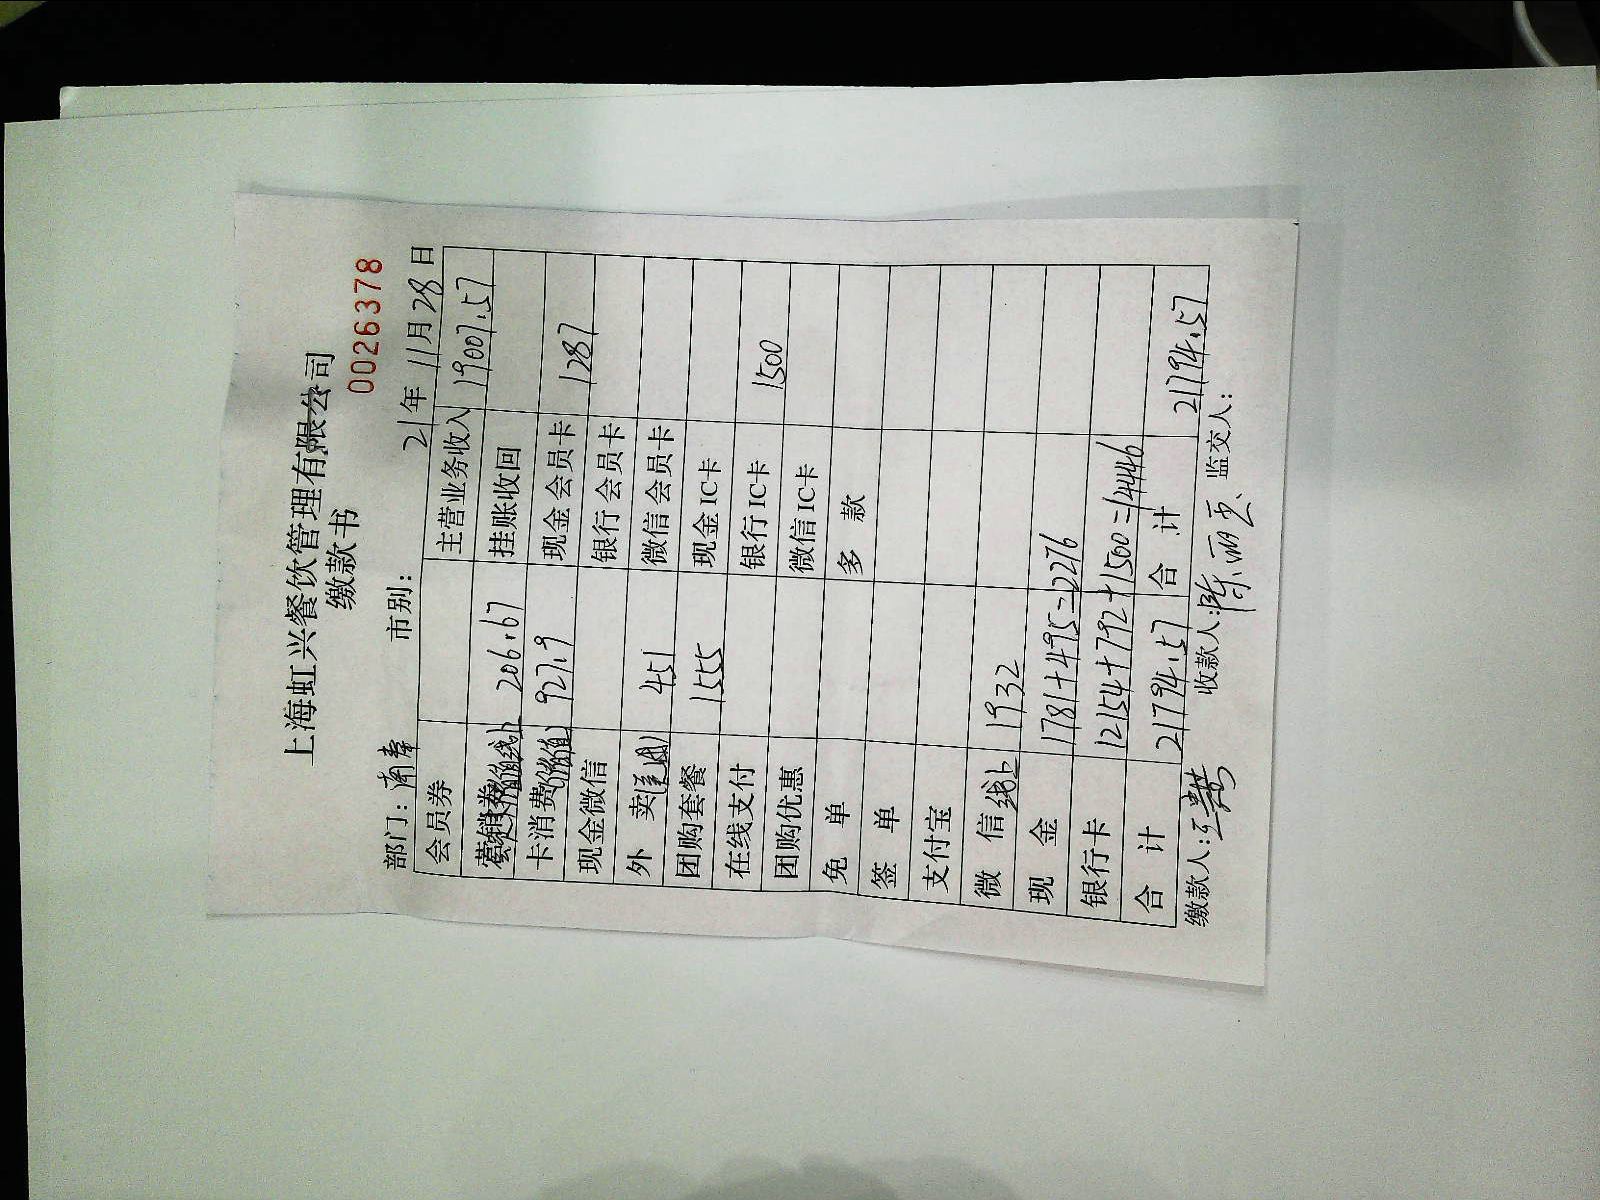 上海虹兴餐饮管理有限公司
缴款书
0026378
部门: 市别: 21年11月28日
会员券 主营业务收入 19007.57
营销券 206.67 挂账收回
卡消费 927.9 现金会员卡 1287
现金微信 银行会员卡
外卖 451 微信会员卡
团购套餐 1555 现金IC卡
在线支付 银行IC卡 1500
团购优惠 微信IC卡
免单 多款
签单
支付宝
微信线上 1932
现金 1781+495=2276
银行卡 12154+792+1500=14446
合计 21794.57 合计 21794.57
缴款人: 收款人:陈丽 监交人: